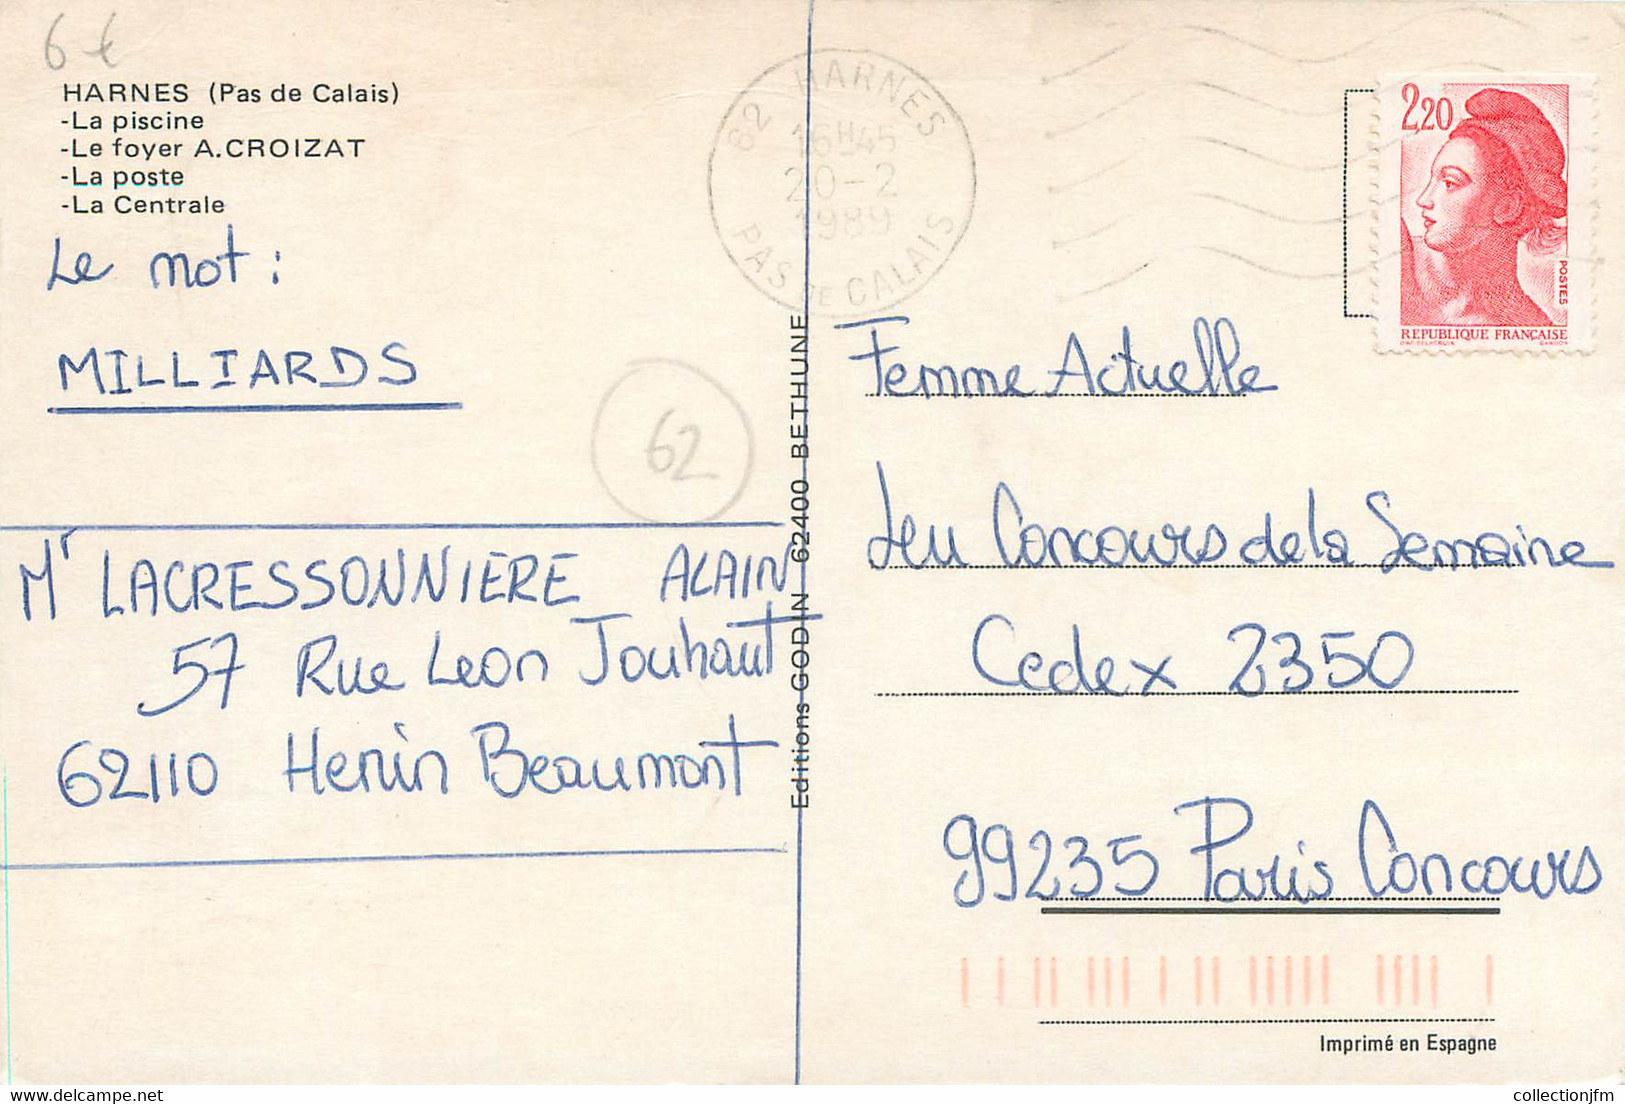 6 €
HARNES (Pas de Calais)
-La piscine
-Le foyer A.CROIZAT
-La poste
-La Centrale
Le mot :
MILLIARDS
62
Mr LACRESSONNIERE ALAIN
57 Rue Leon Jouhaut
62110 Henin Beaumont
Editions GODIN 62400 BETHUNE
62 HARNES
16H45
20-2
1989
PAS DE CALAIS
2,20
POSTES
REPUBLIQUE FRANÇAISE
D'AP. DELACROIX GANDON
Femme Actuelle
Jeu Concours de la Semaine
Cedex 2350
99235 Paris Concours
Imprimé en Espagne
collectionjfm